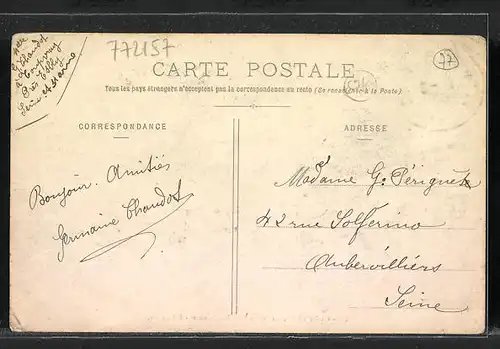 Melle
G. Chaudot
à Compans
près Villy
Seine et Marne
772157
77
CARTE POSTALE
Tous les pays étrangers n'acceptent pas la correspondance au recto (Se renseigner à la Poste)
CORRESPONDANCE
Bonjour. Amitiés
Germaine Chaudot
ADRESSE
Madame G. Pérignet
42 rue Solférino
Aubervilliers
Seine